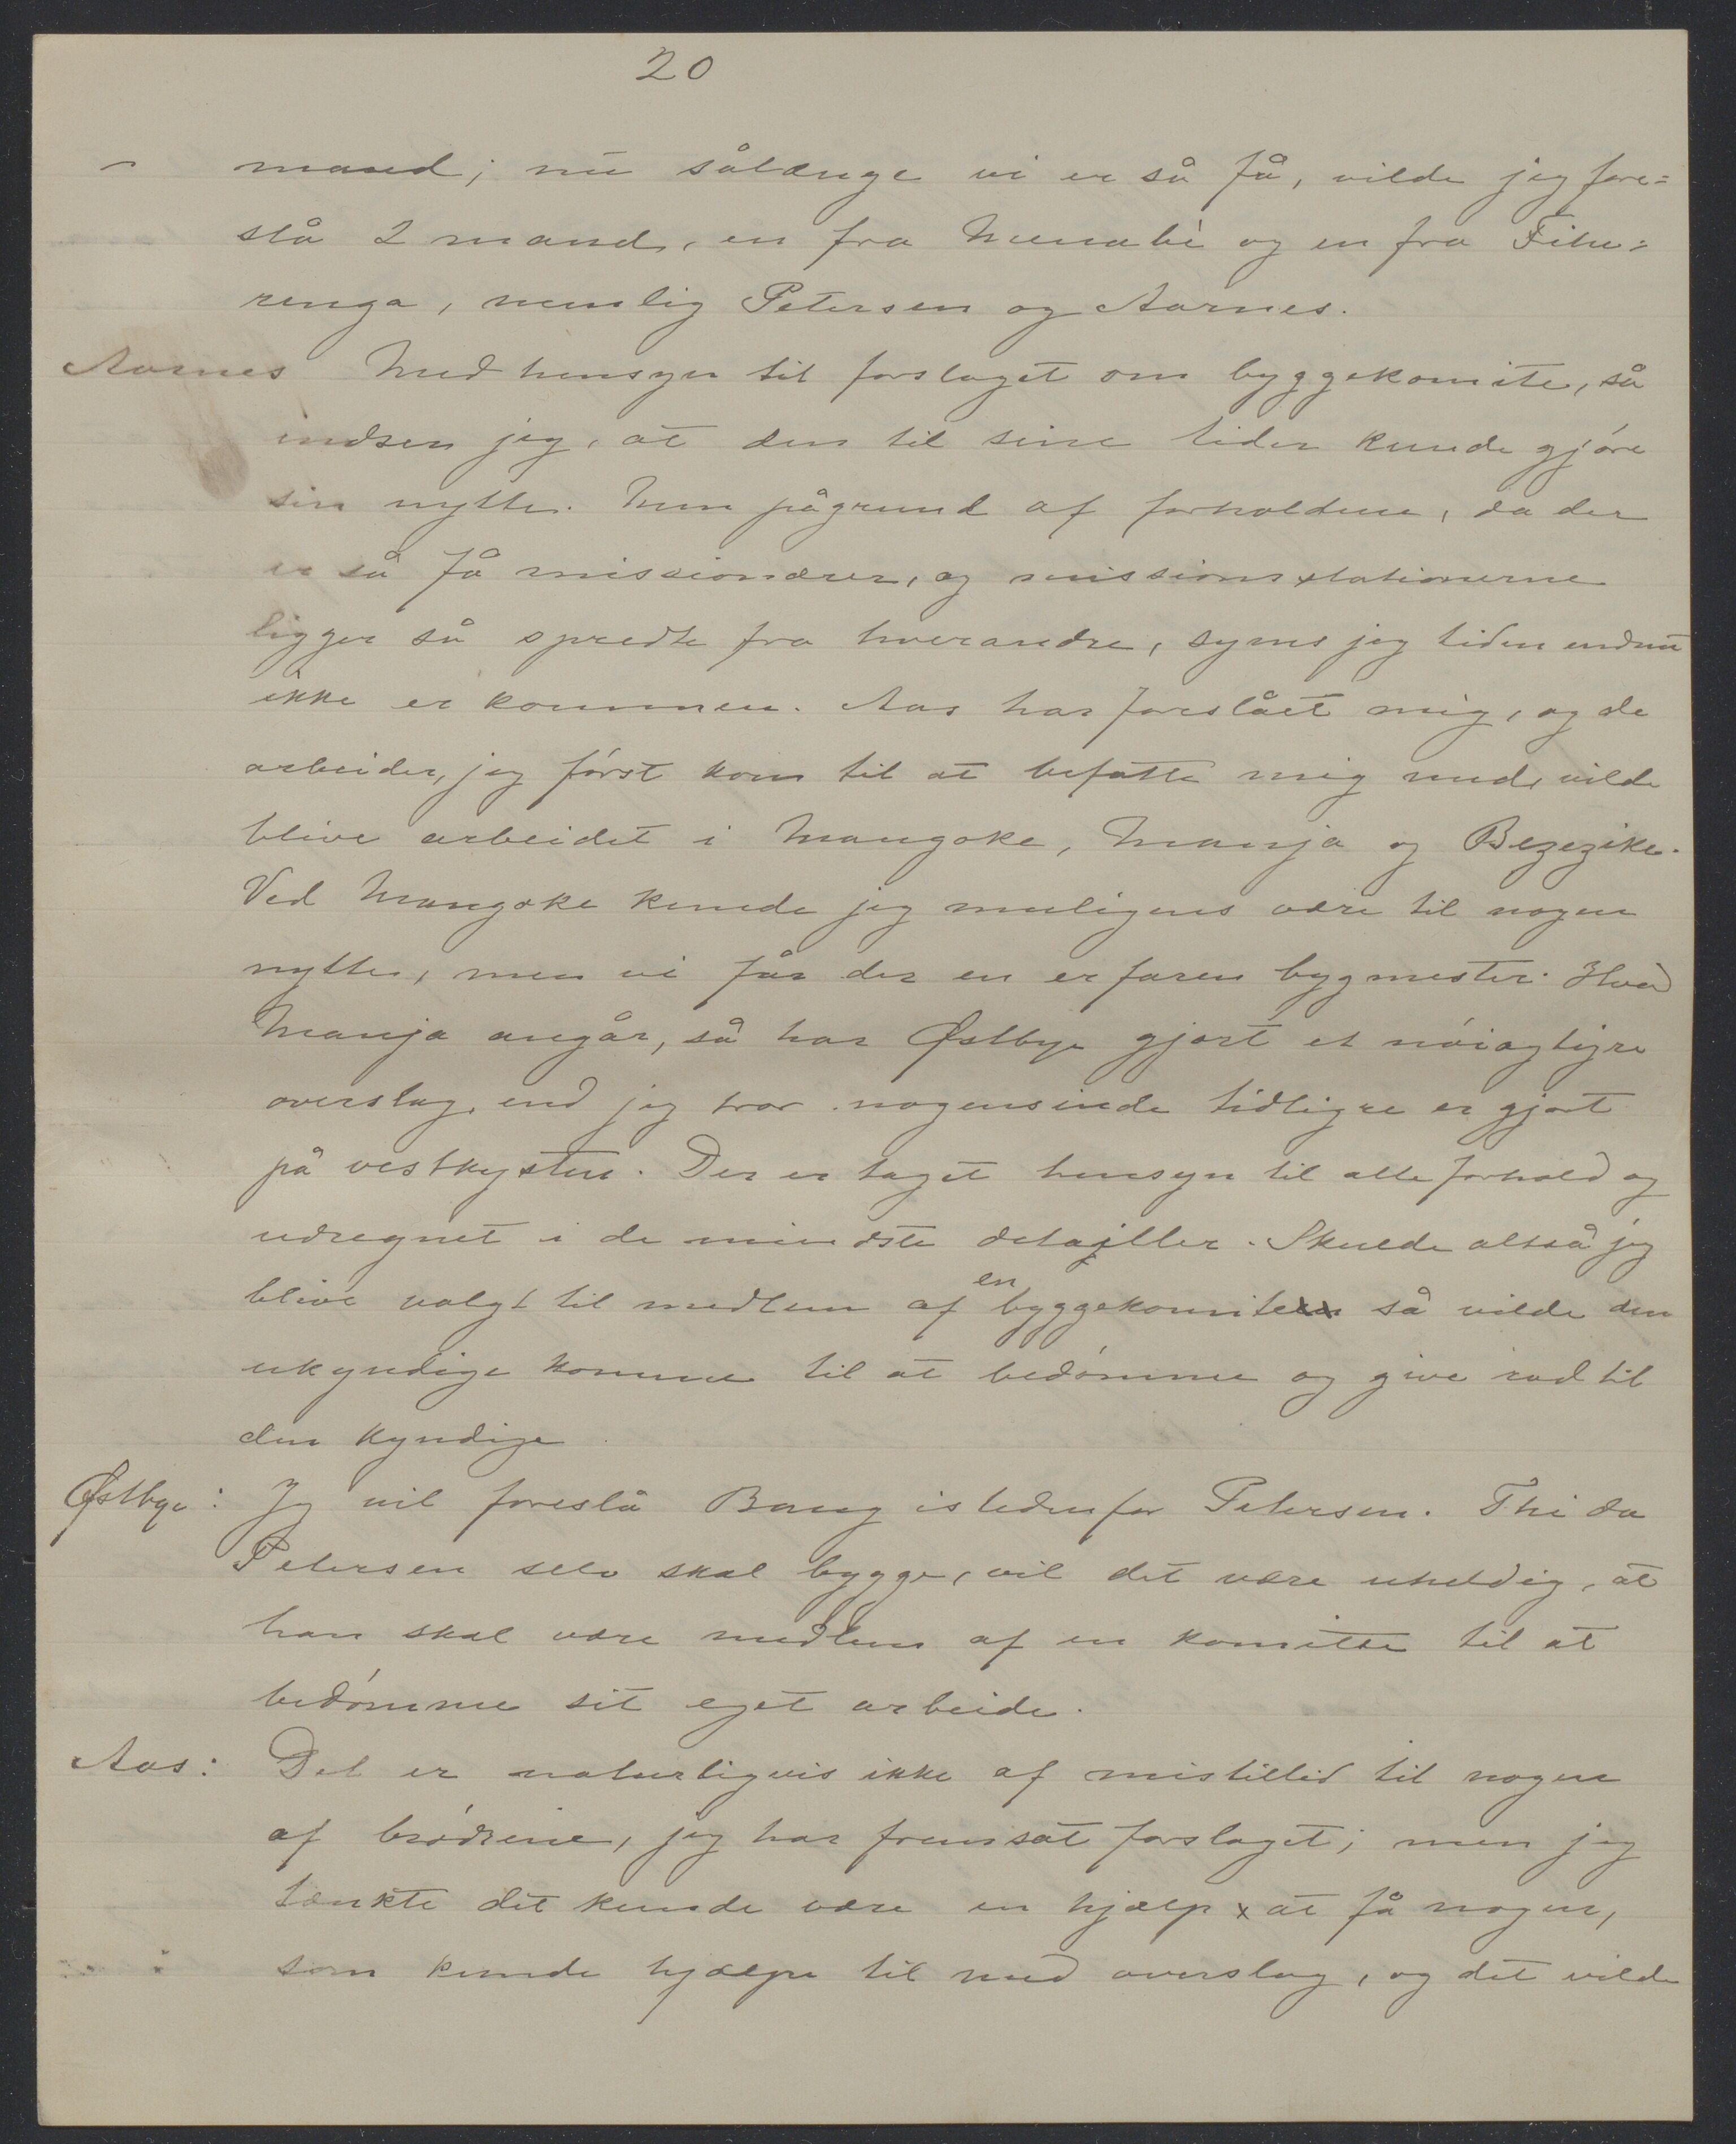 20
mand; nu sålænge vi er så få, vilde jeg fore=
slå 2 mand, en fra Menabé og en fra Fihe=
renga, nemlig Petersen og Aarnes.
Aarnes Med hensyn til forslaget om byggekomite, så
indser jeg, at den til sine tider kunde gjöre
sin nytte. Men pågrund af forholdene, da der
er så få missionærer, og missionsstationerne
ligger så spredte fra hverandre, synes jeg tiden endnu
ikke er kommen. Aas har forslået mig, og de
arbeider, jeg först kom til at befatte mig med, vilde
blive arbeidet i Mangoke, Manja og Bezezike.
Ved Mangoke kunde jeg muligens være til nogen
nytte, men vi får der en erfaren bygmester. Hvad
Manja angår, så har Østbye gjort et nöiagtigre
overslag, end jeg tror nogensinde tidligre er gjort
på vestkysten. Der er taget hensyn til alle forhold og
udregnet i de mindste detajller. Skulde altså jeg
blive valgt til medlem af en byggekomite så vilde den
ukyndige komme til at bedömme og give råd til
den kyndige.
Østbye: Jeg vil foreslå Bang istedenfor Petersen. Thi da
Petersen selv skal bygge, vil det være uheldig, at
han skal være medlem af en komitte til at
bedömme sit eget arbeide.
Aas: Det er naturligvis ikke af mistillid til nogen
af brödrene, jeg har fremsat forslaget; men jeg
tænkte det kunde være en hjælp x at få nogen,
som kunde hjælpe til med overslag, og det vilde